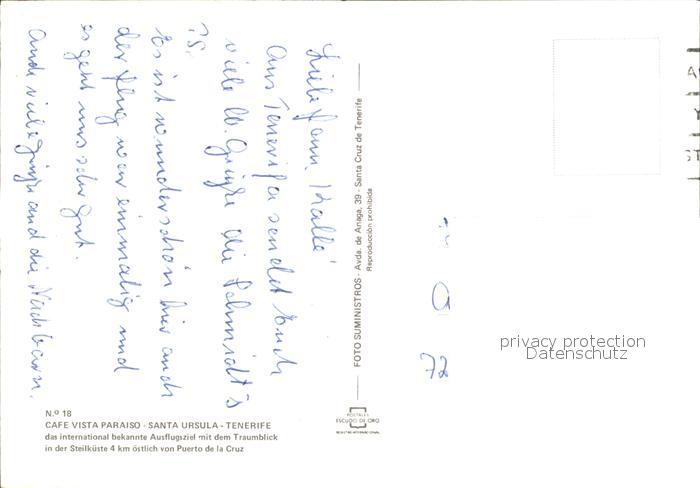 Liebe Fam. Kalle!
Aus Teneriffa sendet Euch
viele lb. Grüße die Schmidt's
P.S.
Es ist wunderschön hier auch
der Flug war einmalig und
es geht uns sehr gut.
Auch viele Grüße an die Nachbarn.
N.º 18
CAFE VISTA PARAISO - SANTA URSULA - TENERIFE
das international bekannte Ausflugsziel mit dem Traumblick
in der Steilküste 4 km östlich von Puerto de la Cruz
FOTO SUMINISTROS - Avda. de Anaga, 39 - Santa Cruz de Tenerife
Reproducción prohibida
POSTALES
ESCUDO DE ORO
REGISTRO INTERNACIONAL
privacy protection
Datenschutz